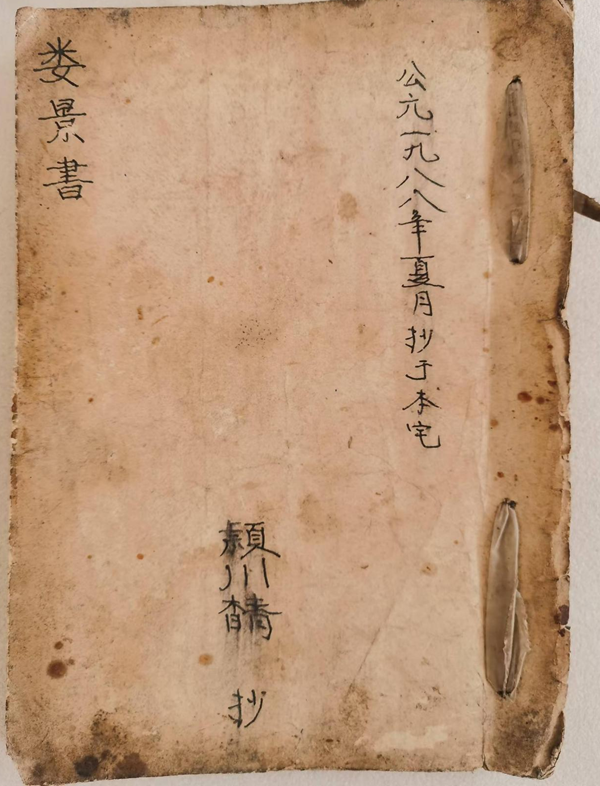 公元一九八八年夏月抄于本宅
穎川 抄
娄景書